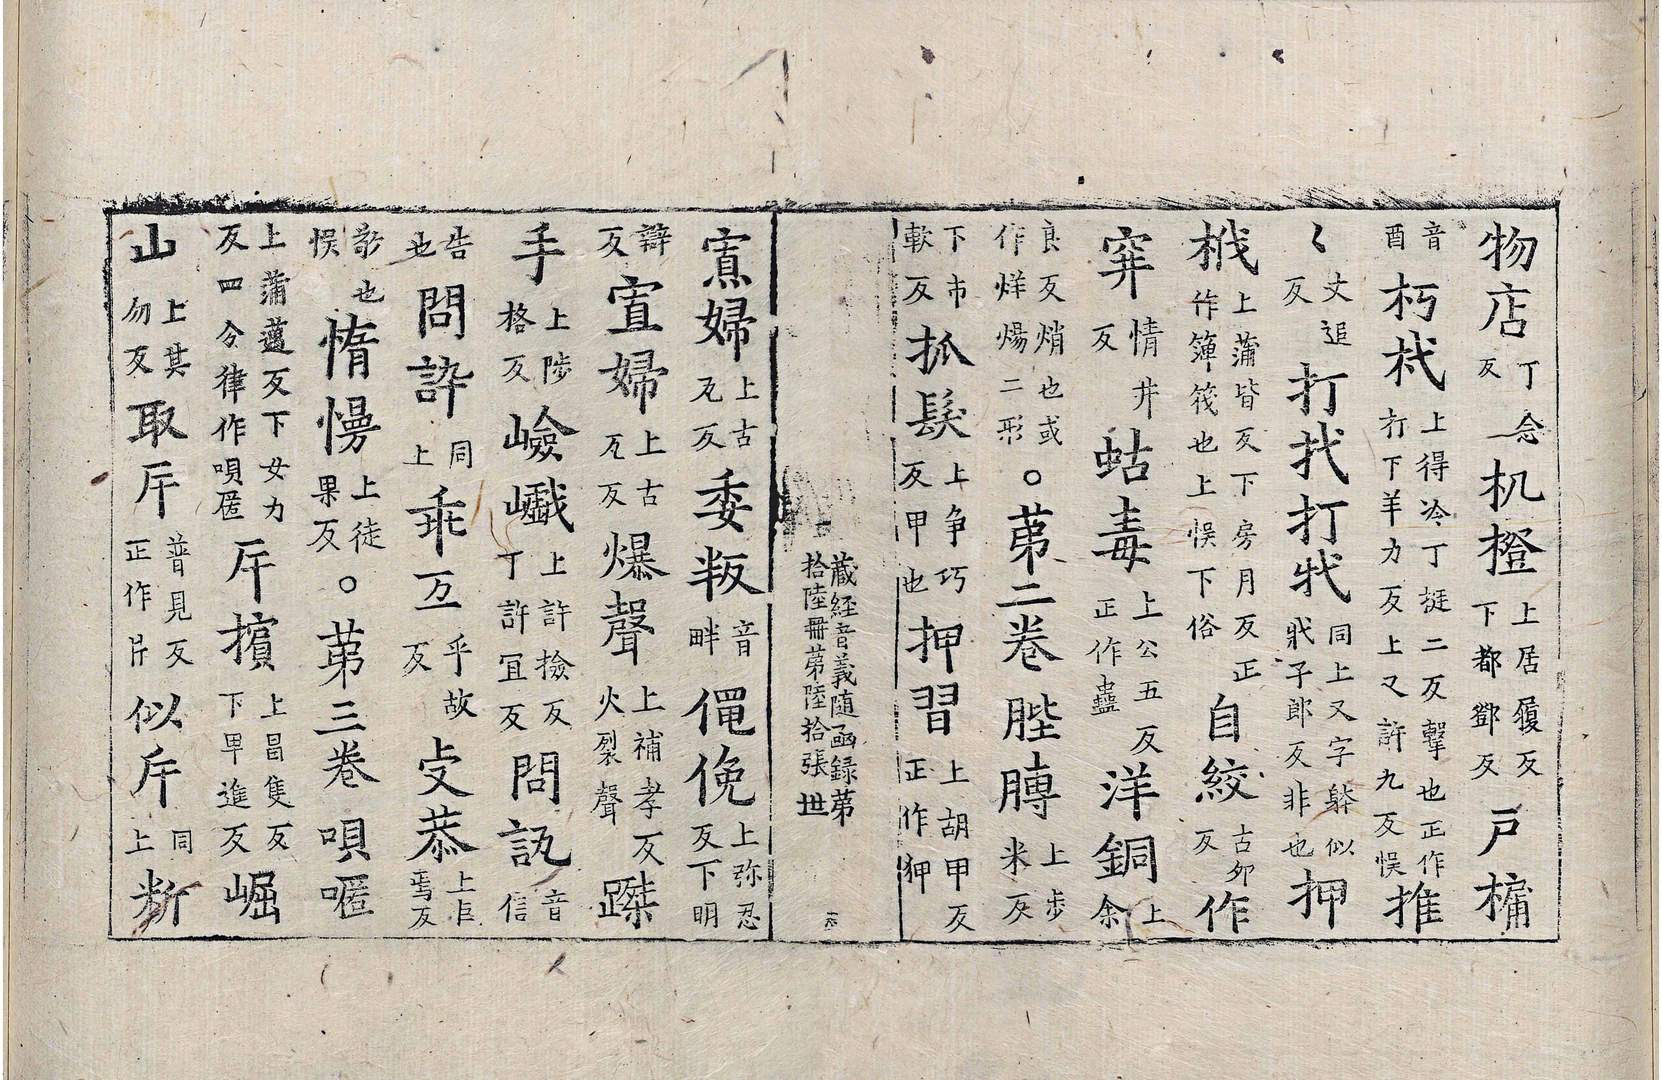 物店丁念反机橙上居履反下都鄧反戸牗
音酉朽栻上得冷丁挻二反擊也正作打下羊力反上又許九反悮推
〻丈追反打找打戕同上又字躰似戕子郎反非也押
栰上蒲皆反下房月反正作簰筏也上悮下俗自絞古夘反作
穽情井反蛄毒上公五反正作蠱洋銅上余
良反焇也或作烊煬二形。苐二卷䏶膞上步米反
下市軟反抓髮上争巧反反甲也押習上胡甲反正作狎
藏經音義隨函録苐
拾陸冊苐陸拾張 世
寡婦上古瓦反委叛音畔僶俛上弥忍反下明
辯反寡婦上古瓦反爆聲上補孝反火裂聲蹂
手上陟格反嶮巇上許撿反丁許冝反問訊音信
告也問訷同上乖互乎故反䖍恭上巨焉反
欺也悮惰慢上徒果反。苐三卷唄嚜
上蒲邁反下女力反四分律作唄匿斥擯上昌隻反下𤰞進反崛
山上其勿反取斤普見反正作片似斤同上断